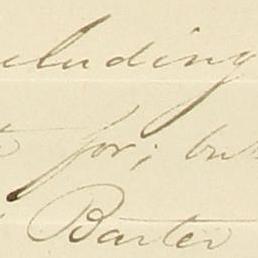 cluding
for; but
Barter